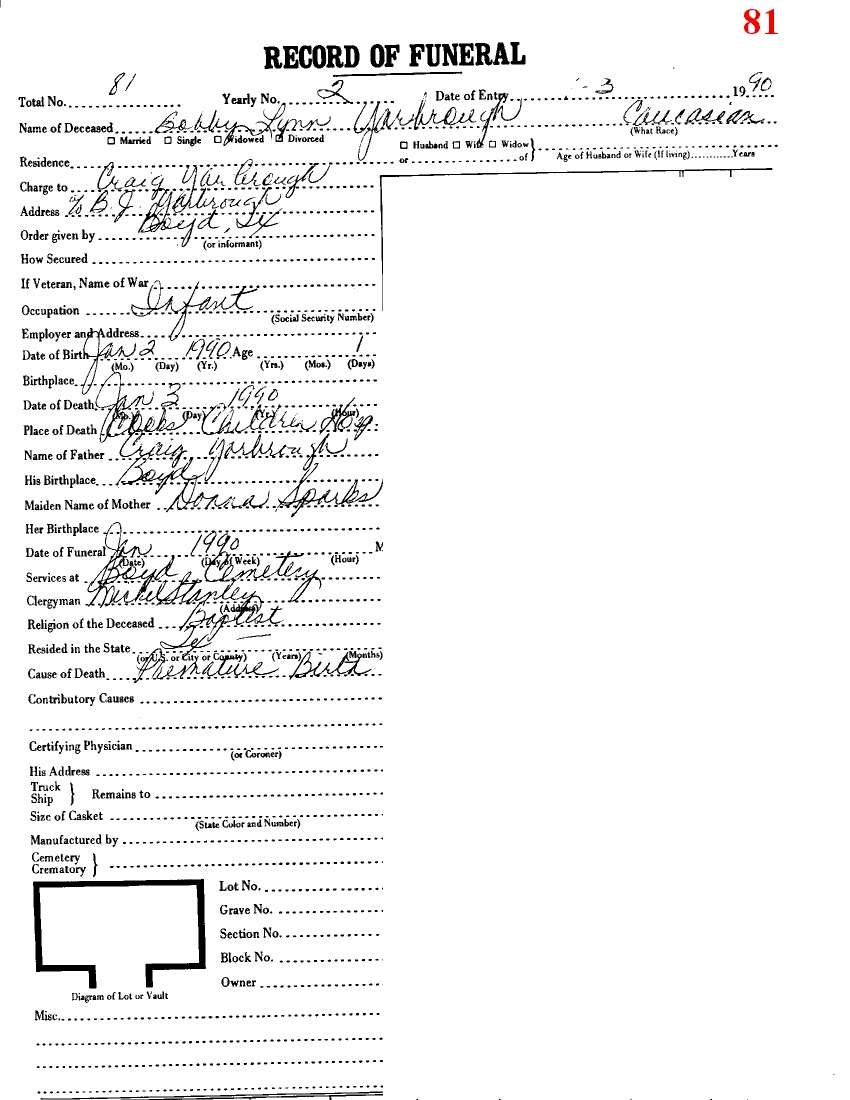 81
RECORD OF FUNERAL
Total No. 81 Yearly No. 2 Date of Entry 1-3 1990
Name of Deceased Bobby Lynn Yarbrough Caucasian
(What Race)
☐ Married ☐ Single ☐ Widowed ☐ Divorced ☐ Husband ☐ Wife ☐ Widow
Residence or of Age of Husband or Wife (If living) Years
Charge to Craig Yarbrough
Address % B.J. Yarbrough
Order given by Boyd, Tx
(or informant)
How Secured
If Veteran, Name of War
Occupation Infant
(Social Security Number)
Employer and Address
Date of Birth Jan 2 1990 Age 1
(Mo.) (Day) (Yr.) (Yrs.) (Mos.) (Days)
Birthplace
Date of Death Jan 3 1990
(Mo.) (Day) (Yr.) (Hour)
Place of Death Cooks Children Hosp
Name of Father Craig Yarbrough
His Birthplace Boyd
Maiden Name of Mother Donna Sparks
Her Birthplace
Date of Funeral Jan 1990 M
(Date) (Day of Week) (Hour)
Services at Boyd Cemetery
Clergyman Stanley
(Address)
Religion of the Deceased Baptist
Resided in the State Tx
(or U.S. or City or County) (Years) (Months)
Cause of Death Premature Birth
Contributory Causes
Certifying Physician
(or Coroner)
His Address
Truck
Ship } Remains to
Size of Casket
(State Color and Number)
Manufactured by
Cemetery
Crematory }
Lot No.
Grave No.
Section No.
Block No.
Owner
Diagram of Lot or Vault
Misc.